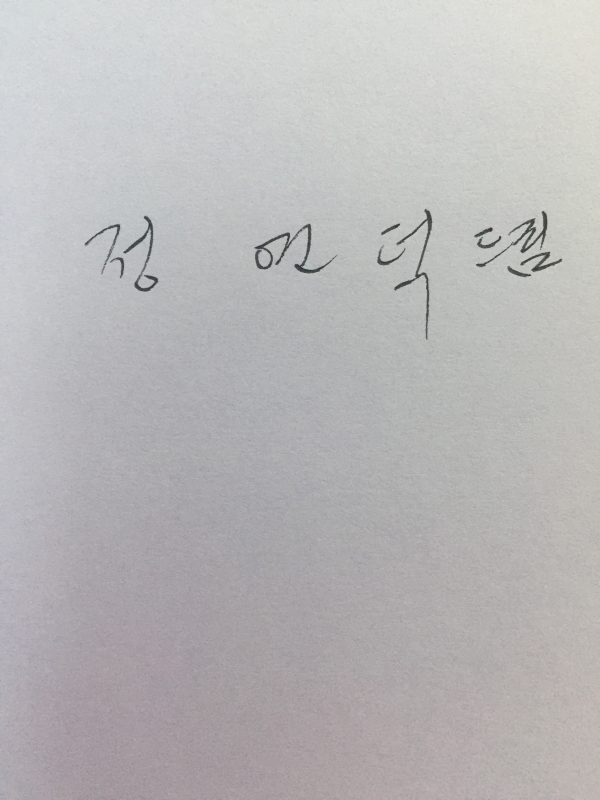 정 언 덕 드림